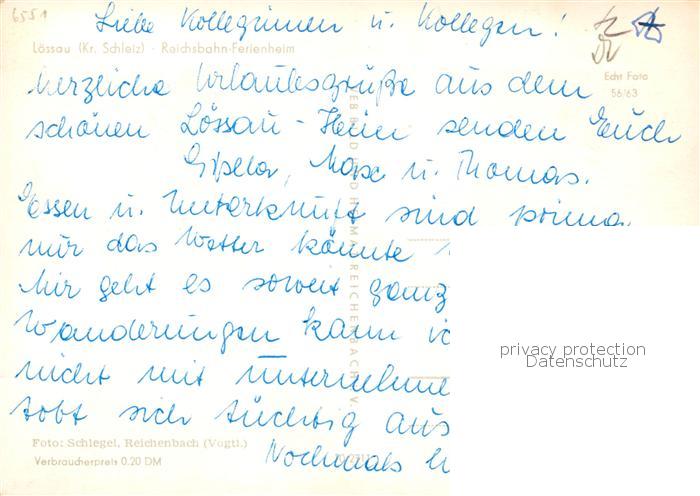 6551
Liebe Kolleginnen u. Kollegen!
Lössau (Kr. Schleiz) · Reichsbahn-Ferienheim
Echt Foto
56/63
herzliche Urlaubsgrüße aus dem
schönen Lössau-Heim senden Euch
Gisela, Max u. Thomas.
Essen u. Unterkunft sind prima,
nur das Wetter könnte
Mir geht es soweit ganz
Wanderungen kann ic
nicht mit unternehme
tobt sich tüchtig aus
Nochmals h
Foto: Schlegel, Reichenbach (Vogtl.)
Verbraucherpreis 0.20 DM
VEB BILD UND HEIMAT REICHENBACH I. V.
privacy protection
Datenschutz